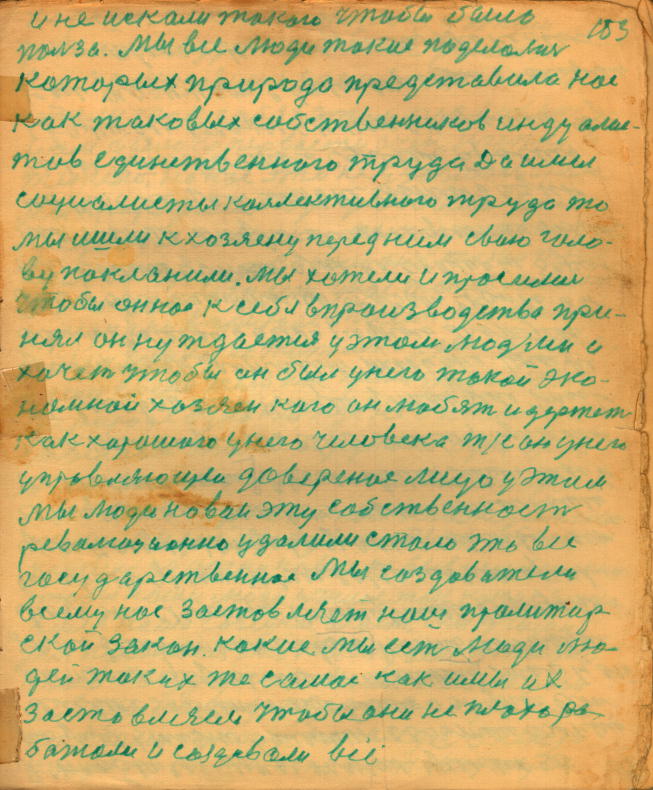 183
и не искали такого чтобы было
полза. Мы все люди такие поделалис
которых природа представила нас
как таковых собственников индуалис-
тов единственного труда Да или
социалисты коллективного труда то
мы ишли к хозяену перед ним свою голо-
ву покланили. Мы хотели и просилис
чтобы он нас к себя в производства при-
нял он нуждается у этом людми и
хочет чтобы он был у него такой эко-
номной хозяен кого он любят и держет
как хорошого у него человека тк он у него
управляющея довереное лицо у этим
Мы люди новаи эту собственност
революционно удалили стало это все
государственное Мы создователи
всему нас заставляет наш пролитар
ской закон. какие мы ест люди лю-
дей таких же самое как и мы их
заставляем чтобы они не плохо ра-
ботали и создовали всё